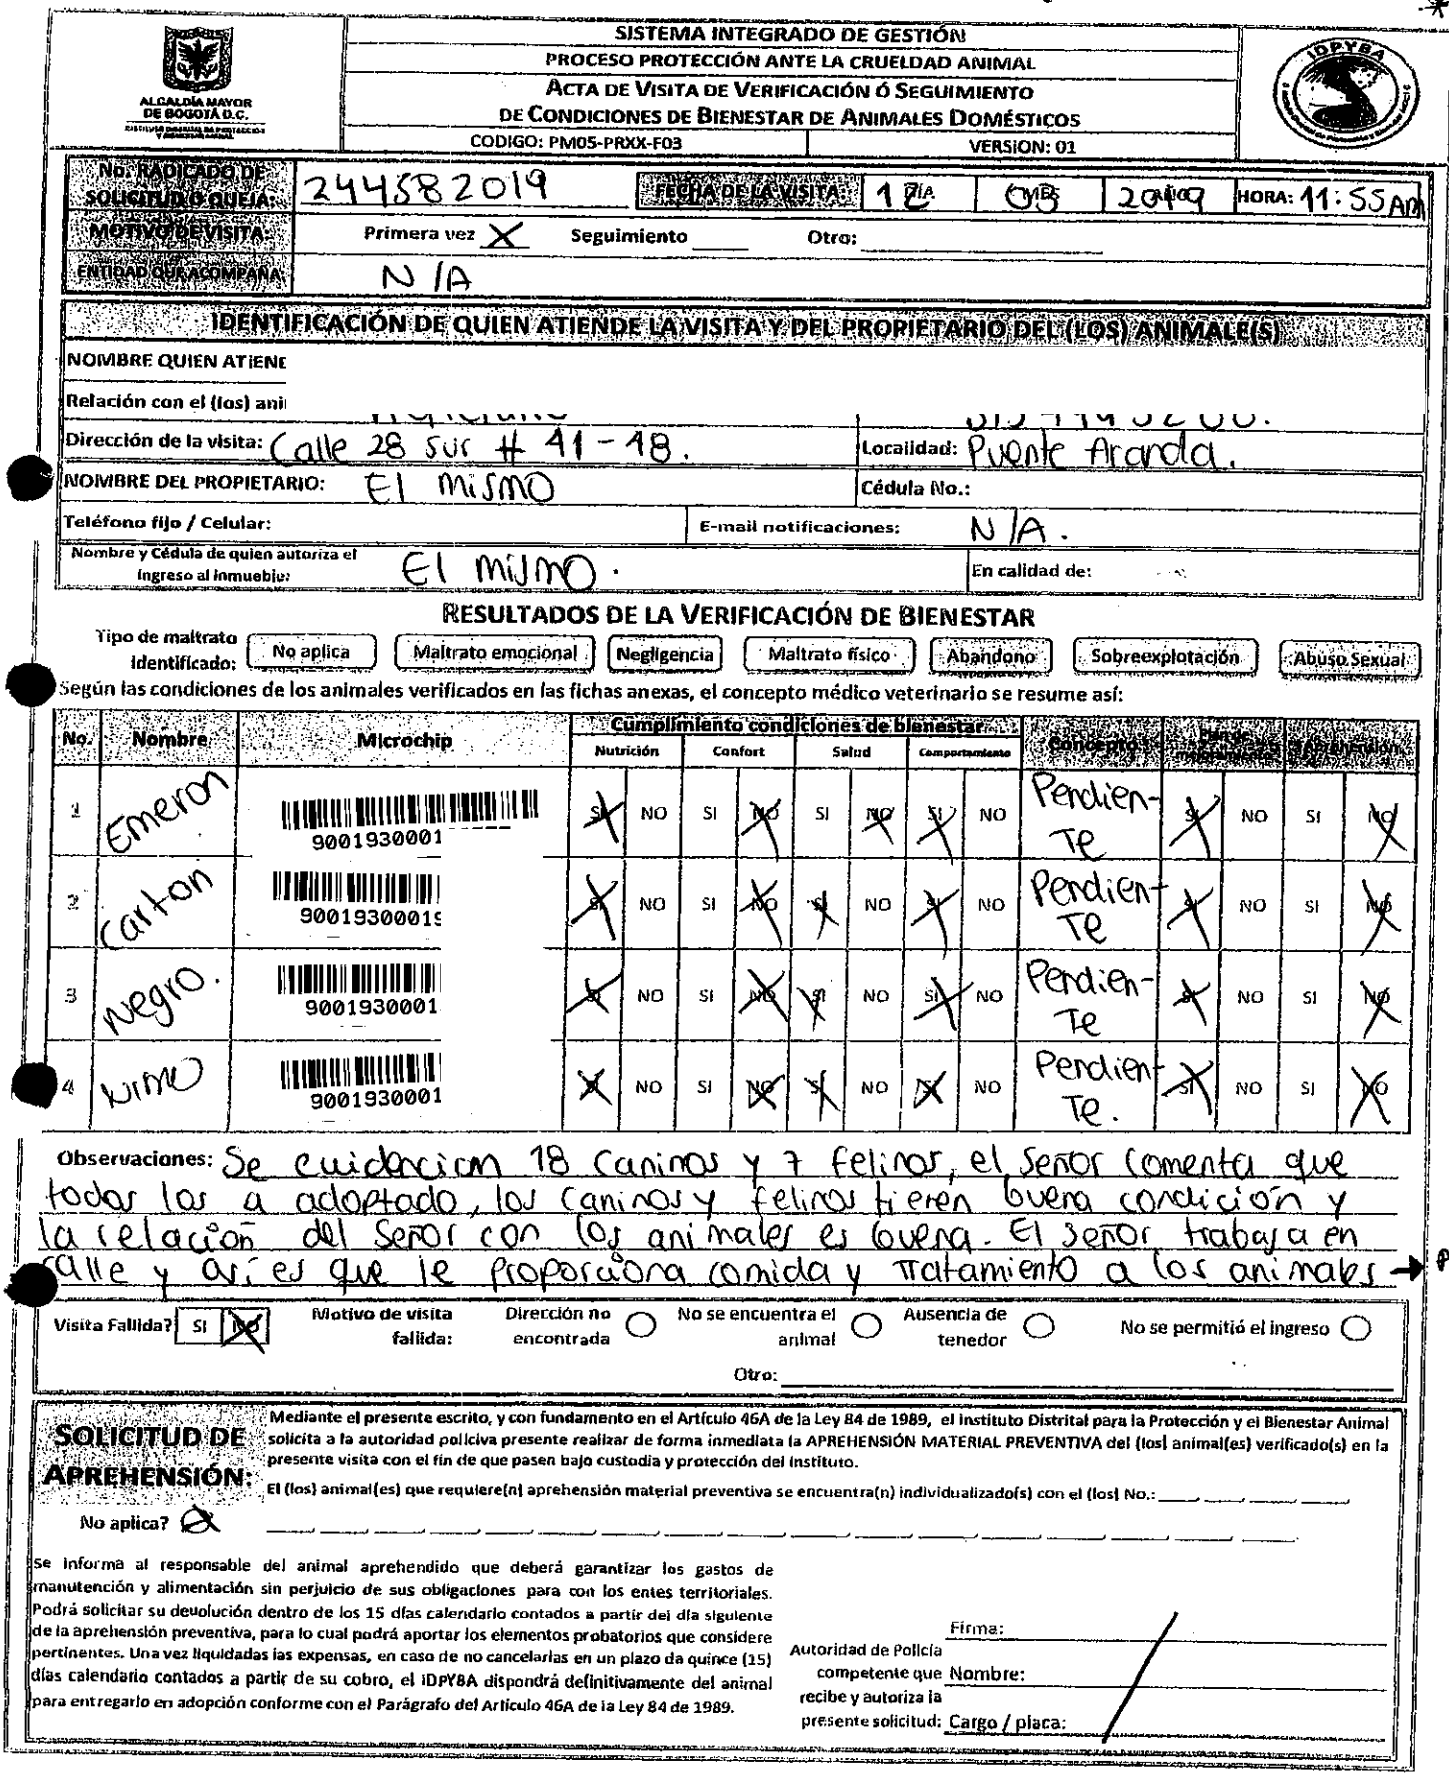 SISTEMA INTEGRADO DE GESTIÓN
PROCESO PROTECCIÓN ANTE LA CRUELDAD ANIMAL
ACTA DE VISITA DE VERIFICACIÓN Ó SEGUIMIENTO
DE CONDICIONES DE BIENESTAR DE ANIMALES DOMÉSTICOS
CODIGO: PM05-PRXX-F03 VERSION: 01
ALCALDÍA MAYOR
DE BOGOTÁ D.C.
IDPYBA
No. RADICADO DE
SOLICITUD O QUEJA: 244582019 FECHA DE LA VISITA: 12 DÍA MES 2019 HORA: 11:55 AM
MOTIVO DE VISITA: Primera vez X Seguimiento Otro:
ENTIDAD QUE ACOMPAÑA: N/A
IDENTIFICACIÓN DE QUIEN ATIENDE LA VISITA Y DEL PROPIETARIO DEL (LOS) ANIMALE(S)
NOMBRE QUIEN ATIENE
Relación con el (los) ani
Dirección de la visita: Calle 28 sur # 41-18. Localidad: Puente Aranda.
NOMBRE DEL PROPIETARIO: El mismo Cédula No.:
Teléfono fijo / Celular: E-mail notificaciones: N/A.
Nombre y Cédula de quien autoriza el
ingreso al inmueble: El mismo. En calidad de:
RESULTADOS DE LA VERIFICACIÓN DE BIENESTAR
Tipo de maltrato
identificado: No aplica Maltrato emocional Negligencia Maltrato físico Abandono Sobreexplotación Abuso Sexual
Según las condiciones de los animales verificados en las fichas anexas, el concepto médico veterinario se resume así:
No. Nombre Microchip Cumplimiento condiciones de bienestar Concepto Aprehensión
Nutrición Confort Salud Comportamiento
1 Emeron 9001930001 SI NO SI NO SI NO SI NO Pendien-
te SI NO SI NO
2 Carton 90019300019 SI NO SI NO SI NO SI NO Pendien-
te SI NO SI NO
3 Negro. 9001930001 SI NO SI NO SI NO SI NO Pendien-
te SI NO SI NO
4 Nimo 9001930001 SI NO SI NO SI NO SI NO Pendien-
te. SI NO SI NO
Observaciones: Se evidencian 18 caninos y 7 felinos, el señor comenta que
todos los a adoptado, los caninos y felinos tienen buena condición y
la relación del señor con los animales es buena. El señor trabaja en
calle y así es que le proporciona comida y tratamiento a los animales →
Visita Fallida? SI NO Motivo de visita
fallida: Dirección no
encontrada No se encuentra el
animal Ausencia de
tenedor No se permitió el ingreso
Otro:
SOLICITUD DE
APREHENSIÓN:
Mediante el presente escrito, y con fundamento en el Artículo 46A de la Ley 84 de 1989, el Instituto Distrital para la Protección y el Bienestar Animal
solicita a la autoridad policiva presente realizar de forma inmediata la APREHENSIÓN MATERIAL PREVENTIVA del (los) animal(es) verificado(s) en la
presente visita con el fin de que pasen bajo custodia y protección del Instituto.
El (los) animal(es) que requiere(n) aprehensión material preventiva se encuentra(n) individualizado(s) con el (los) No.:
No aplica? X
Se informa al responsable del animal aprehendido que deberá garantizar los gastos de
manutención y alimentación sin perjuicio de sus obligaciones para con los entes territoriales.
Podrá solicitar su devolución dentro de los 15 días calendario contados a partir del día siguiente
de la aprehensión preventiva, para lo cual podrá aportar los elementos probatorios que considere
pertinentes. Una vez liquidadas las expensas, en caso de no cancelarlas en un plazo da quince (15)
días calendario contados a partir de su cobro, el IDPYBA dispondrá definitivamente del animal
para entregarlo en adopción conforme con el Parágrafo del Artículo 46A de la Ley 84 de 1989.
Autoridad de Policía
competente que
recibe y autoriza la
presente solicitud:
Firma:
Nombre:
Cargo / placa: